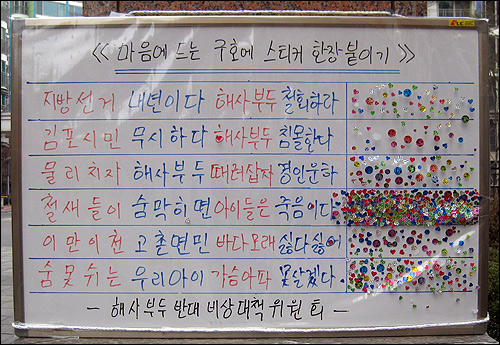 《 마음에 드는 구호에 스티커 한장 붙이기 》
지방선거 내년이다 해사부두 철회하라
김포시민 무시하다 해사부두 침몰한다
물리치자 해사부두 때려잡자 경인운하
철새들이 숨막히면 아이들은 죽음이다
이만이천 고촌면민 바다모래 싫다싫어
숨못쉬는 우리아이 가슴아파 못살겠다
- 해사부두 반대 비상대책위원회 -